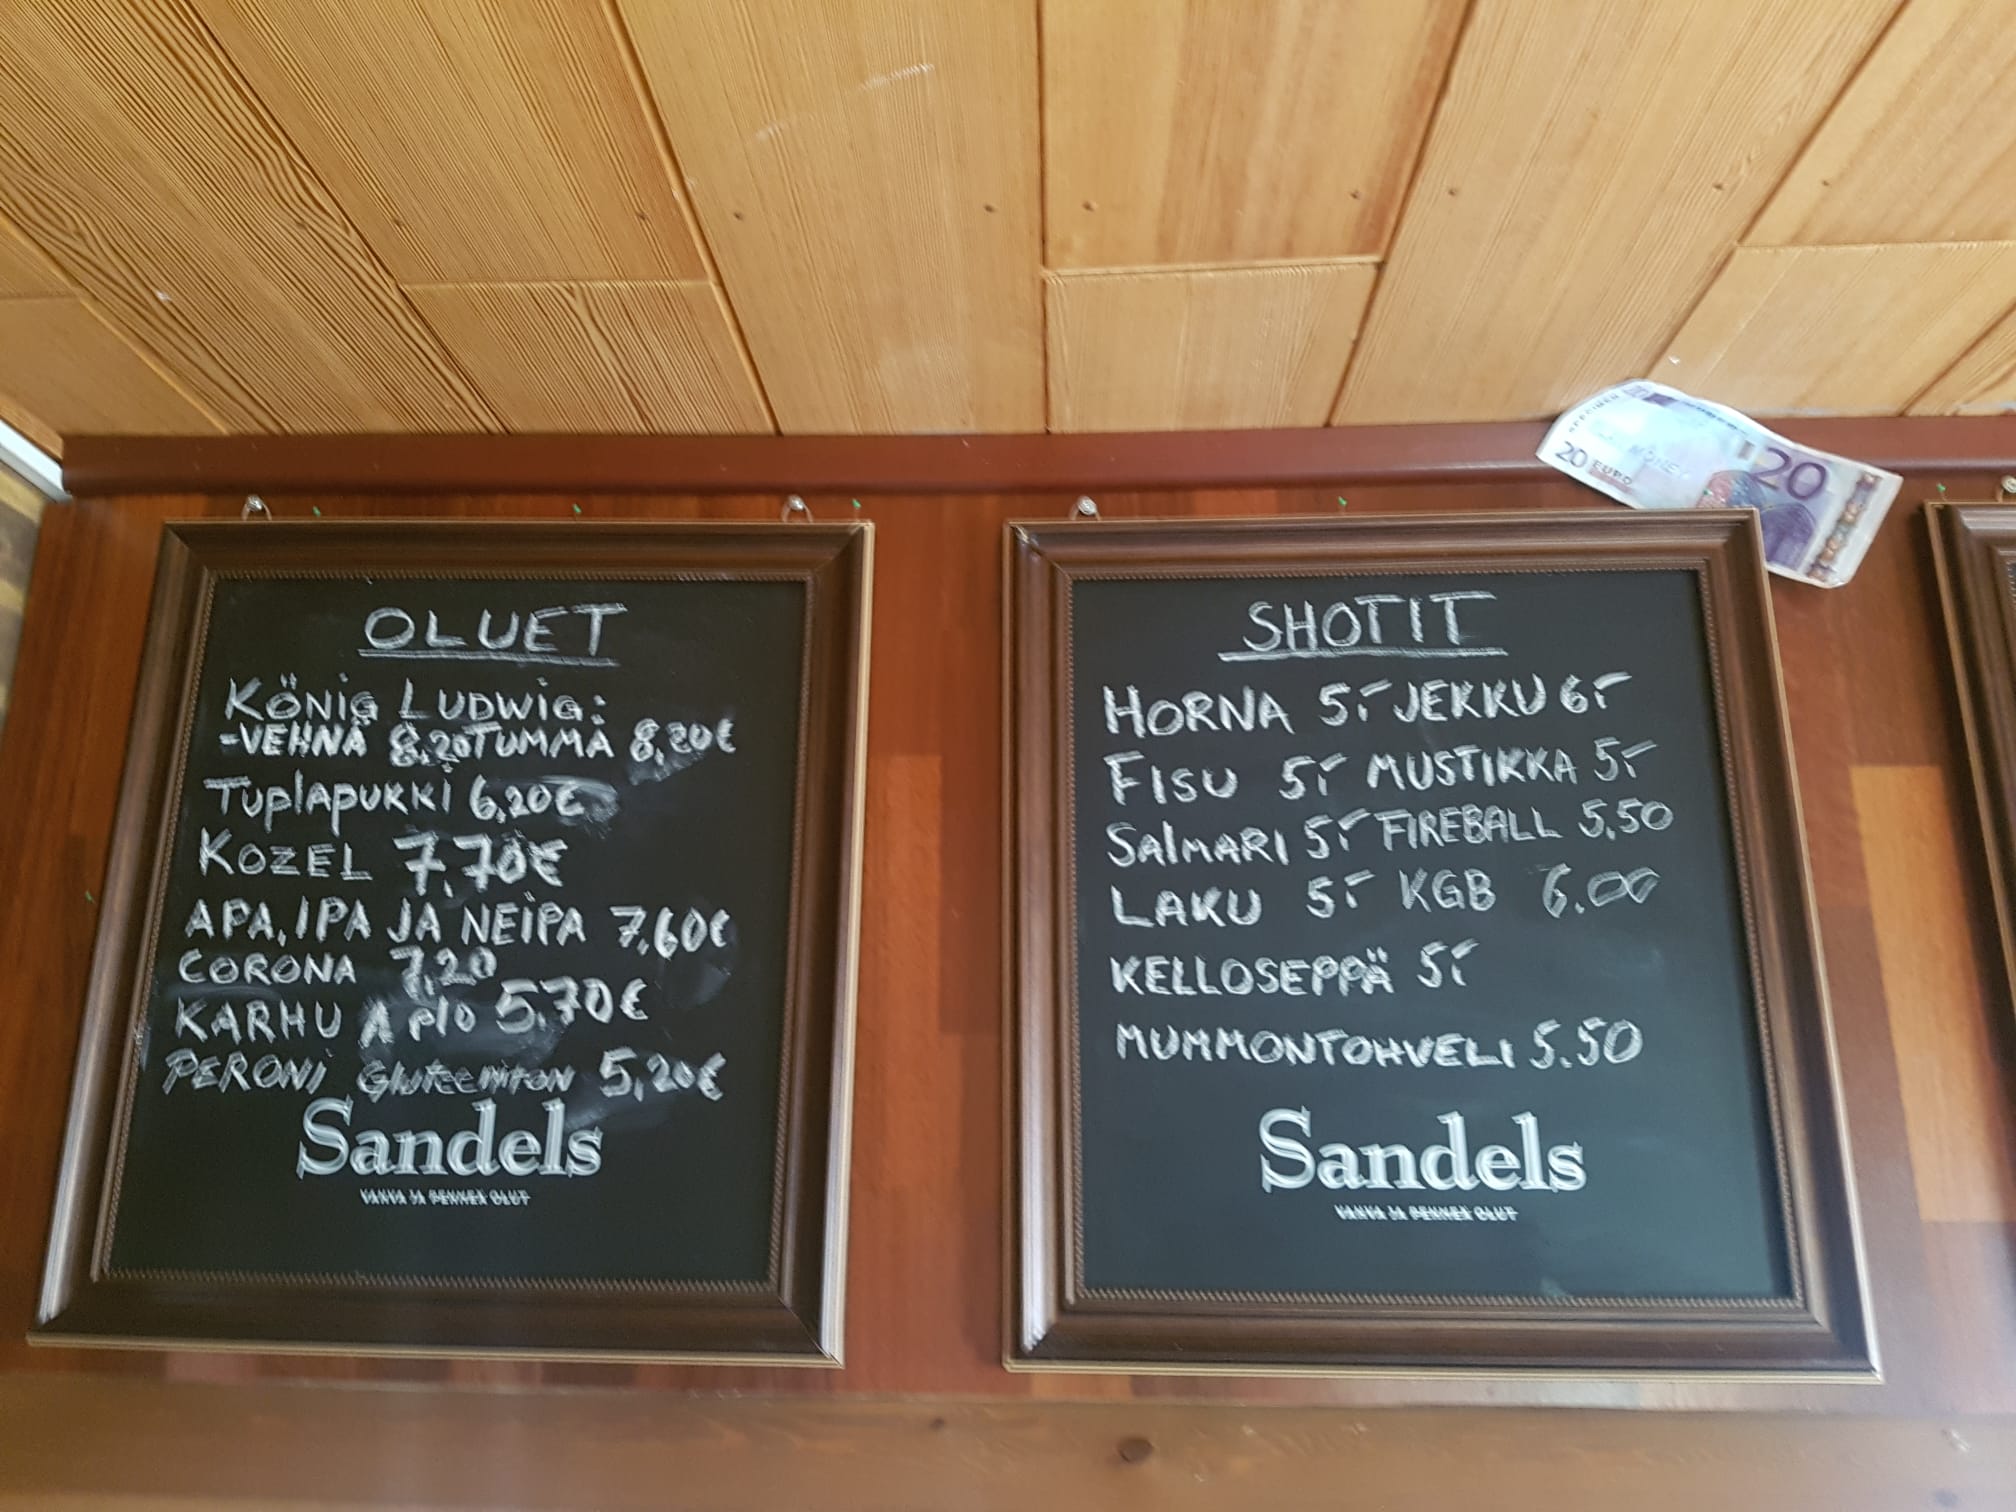 OLUET
KÖNIG LUDWIG:
-VEHNÄ 8,20 TUMMA 8,20€
Tuplapukki 6,20€
KOZEL 7,70€
APA, IPA JA NEIPA 7,60€
CORONA 7,20
KARHU A plo 5,70€
PERONI Gluteeniton 5,20€
Sandels
VAHVA JA PEHMEÄ OLUT
20 EURO
20
SHOTIT
HORNA 5,- JEKKU 6,-
FISU 5,- MUSTIKKA 5,-
SAlMARI 5,- FIREBALL 5.50
LAKU 5,- KGB 6.00
KELLOSEPPÄ 5,-
MUMMONTOHVELI 5.50
Sandels
VAHVA JA PEHMEÄ OLUT